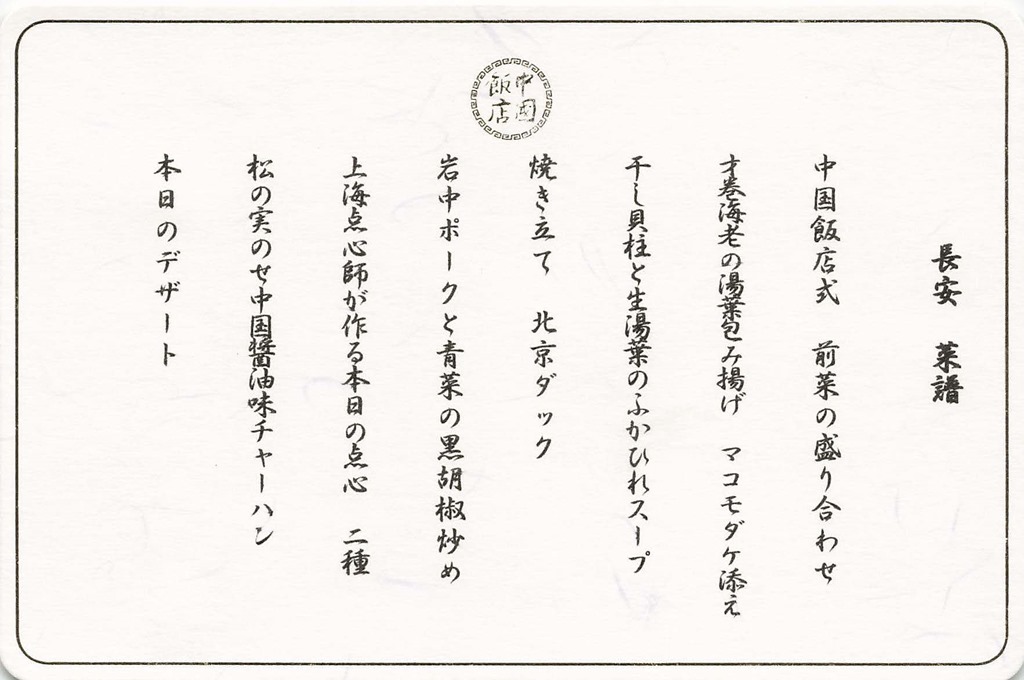 中國飯店
長安　菜譜
中国飯店式　前菜の盛り合わせ
才巻海老の湯葉包み揚げ　マコモダケ添え
干し貝柱と生湯葉のふかひれスープ
焼き立て　北京ダック
岩中ポークと青菜の黒胡椒炒め
上海点心師が作る本日の点心　二種
松の実のせ中国醤油味チャーハン
本日のデザート